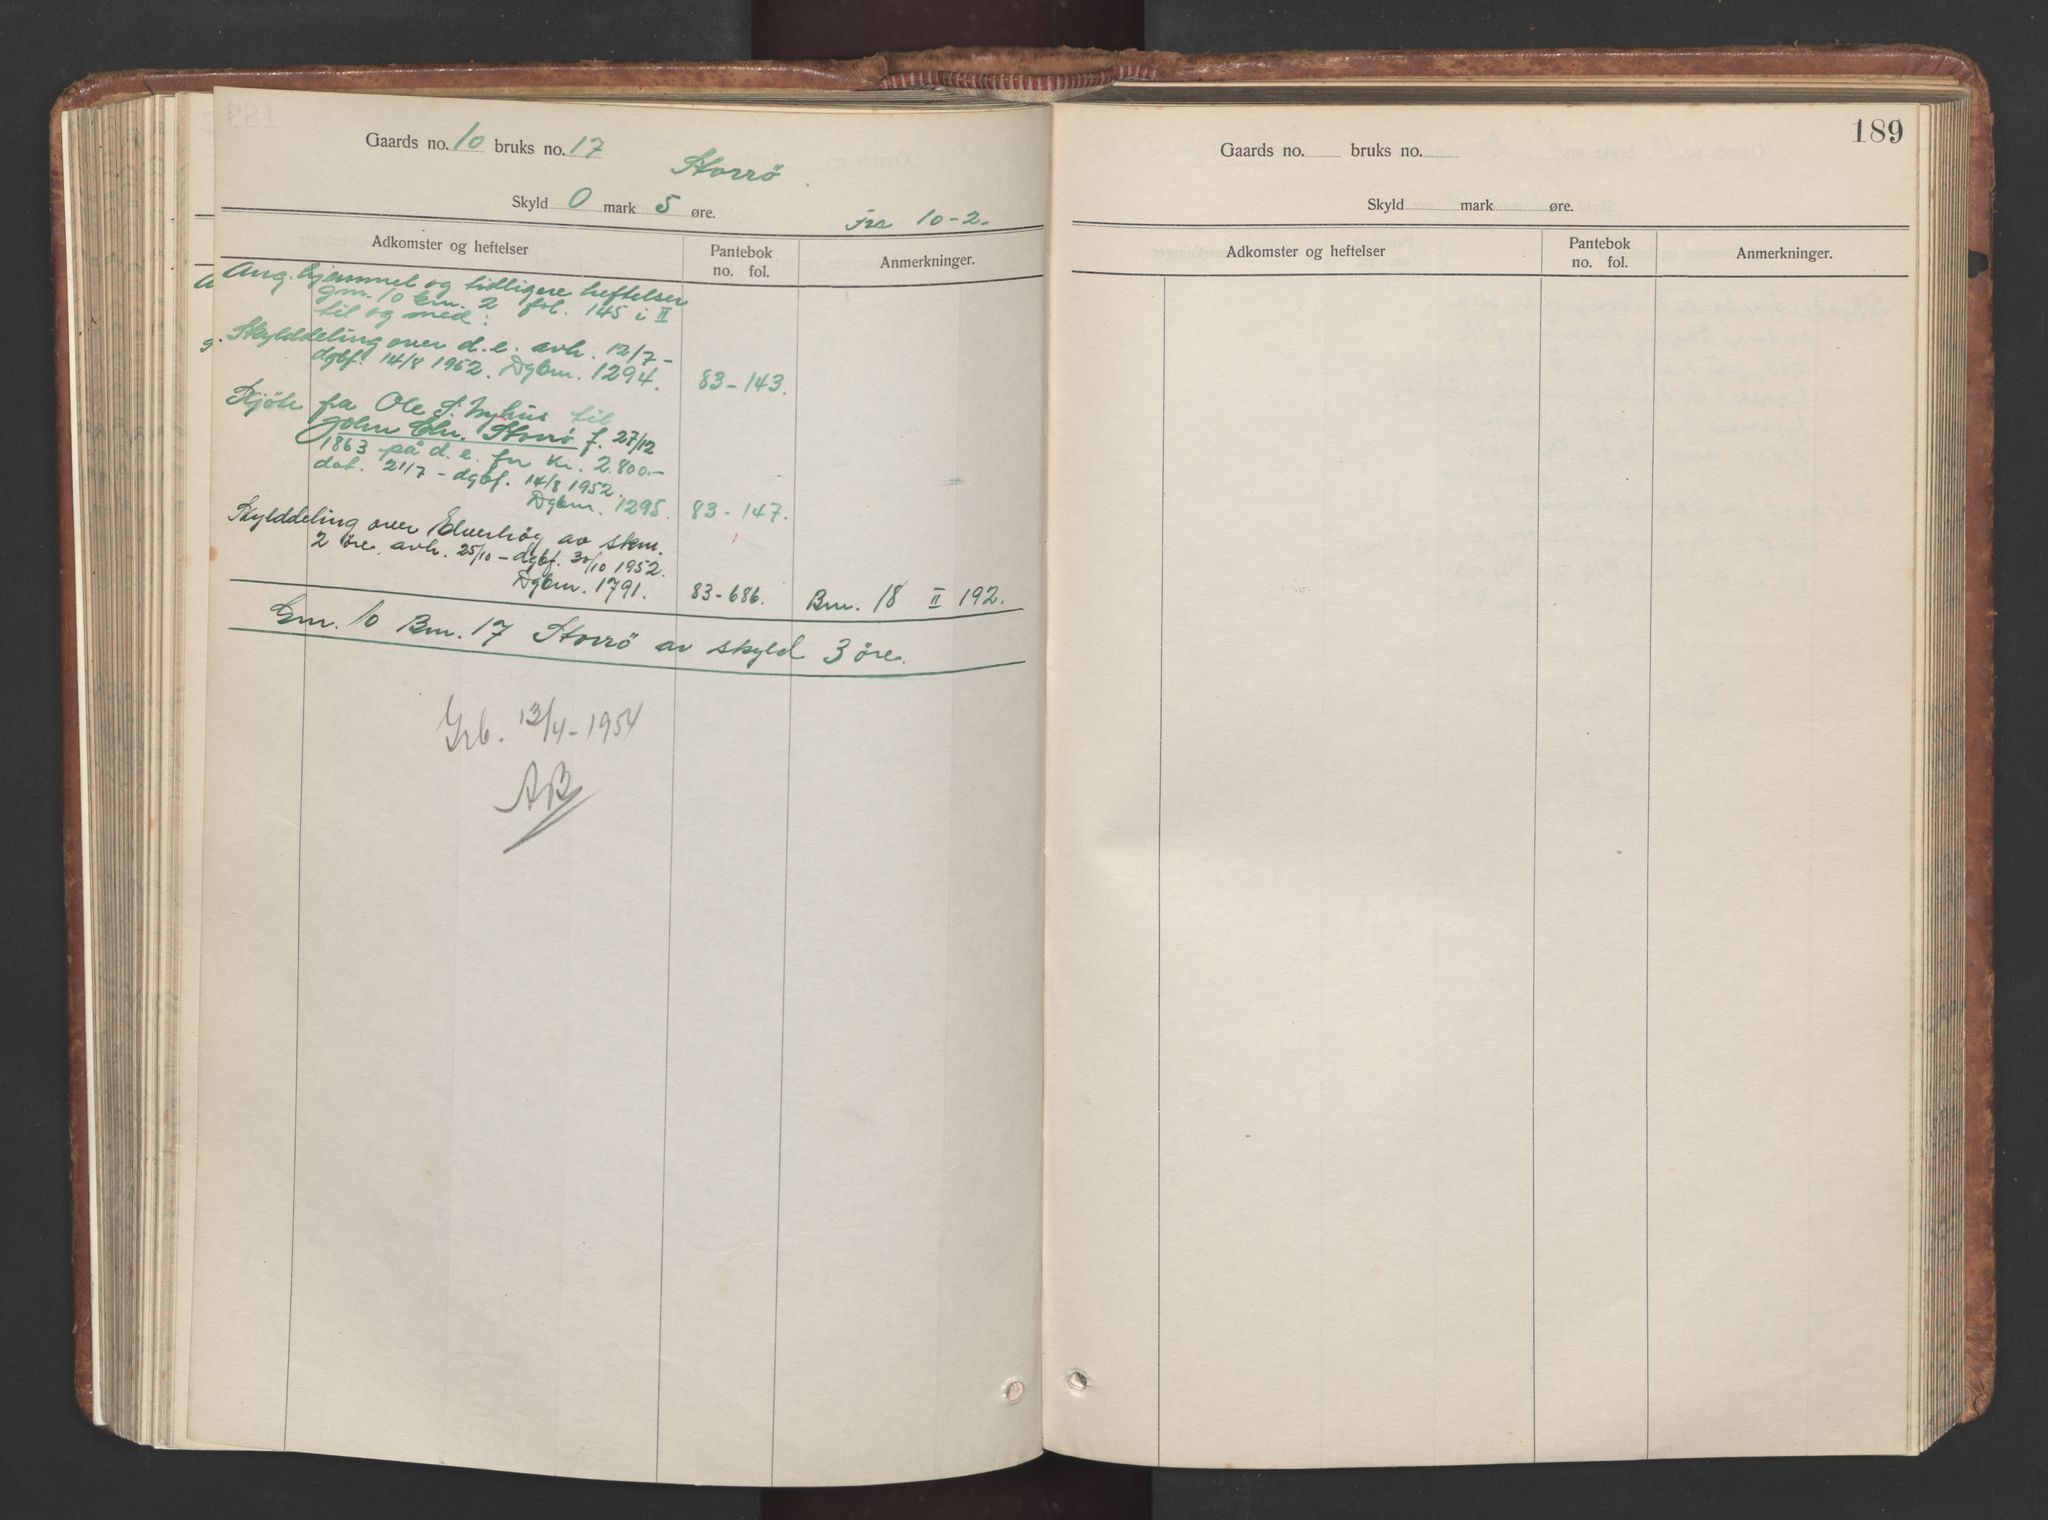 Gaards no. 10 bruks no. 17
Storrö
Skyld 0 mark 5 øre.
fra 10-2.
Adkomster og heftelser
Pantebok
no. fol.
Anmerkninger.
Ang. hjemmel og tidligere heftelser
gnr. 10 bnr. 2 fol. 145 i II
til og med:
Skylddeling over d.e. avh. 12/7 -
dgbf. 14/8 1952. Dgbnr. 1294. 83-143.
Skjöte fra Ole S. Nyhus til
John Chr. Storrö f. 27/12
1863 på d.e. for kr. 2.800.-
dat. 21/7 - dgbf. 14/8 1952.
Dgbnr. 1295. 83-147.
Skylddeling over Elverhög av skm.
2 öre, avh. 25/10 - dgbf. 30/10 1952.
Dgbnr. 1791. 83-686. Bnr. 18 II 192.
Gnr. 10 Bnr. 17 Storrö av skyld 3 öre.
Grb. 13/4-1954
AB
189
Gaards no. bruks no.
Skyld mark øre.
Adkomster og heftelser
Pantebok
no. fol.
Anmerkninger.